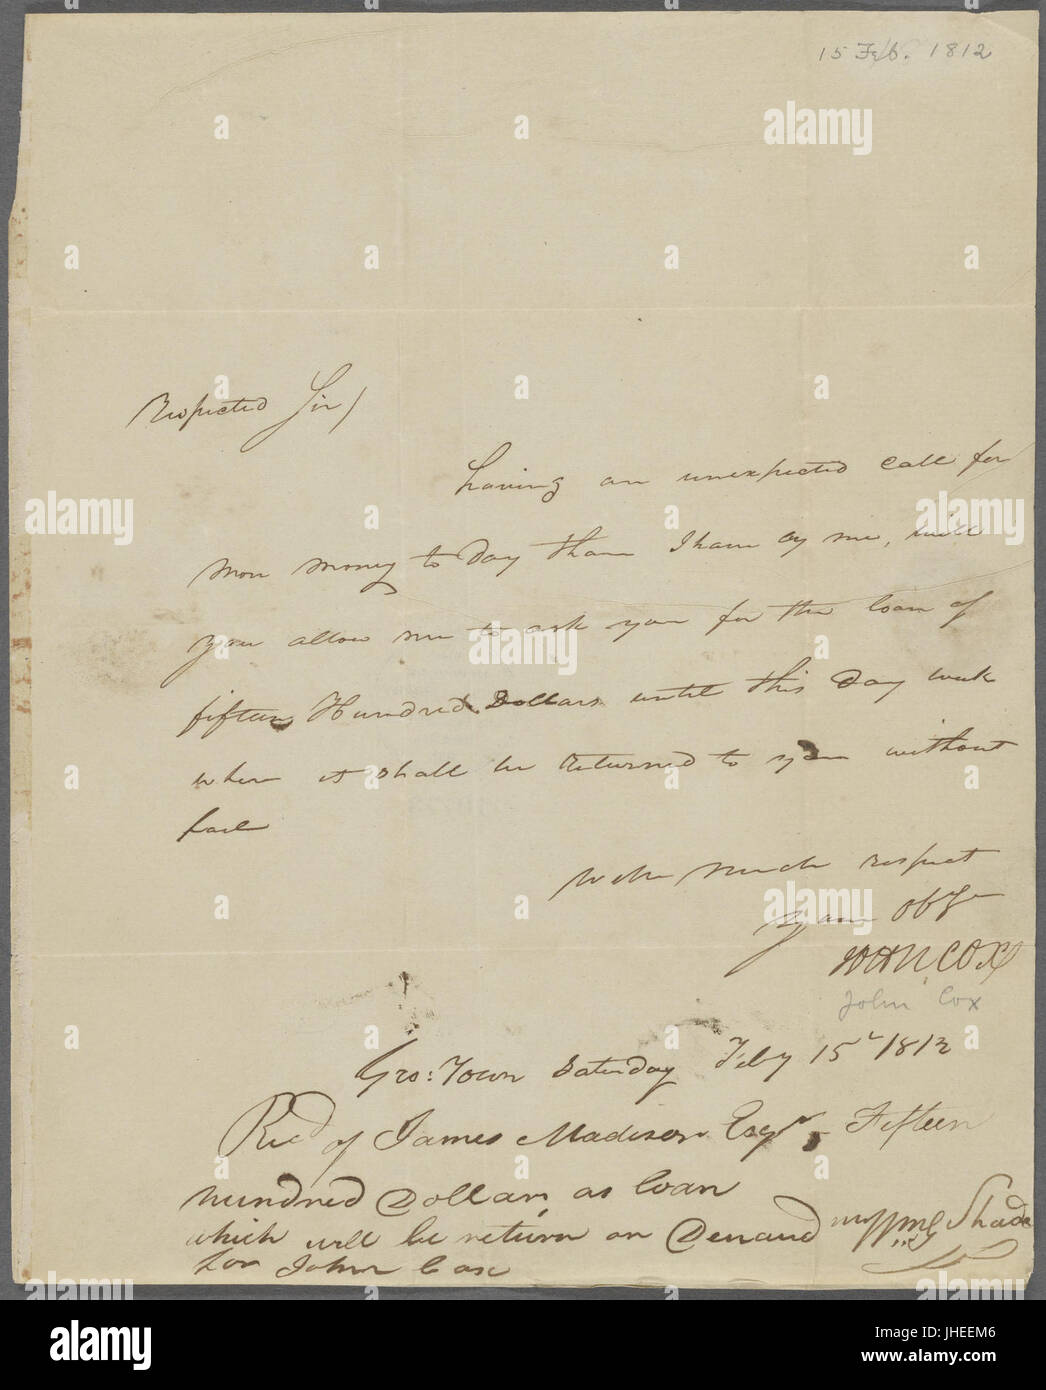 15 Feb. 1812
Respected Sir/
having an unexpected call for
more money to Day than I have by me, will
you allow me to ask you for the loan of
fifteen Hundred Dollars until this Day week
when it shall be returned to you without
fail
with much respect
your
COX
John Cox
Geo: Town Saturday Feby 15th 1812
Recd of James Madison Esqr Fifteen
hundred Dollars as loan
which will be return on Demand
for John Cox
alamy
Image ID: JHEEM6
www.alamy.com